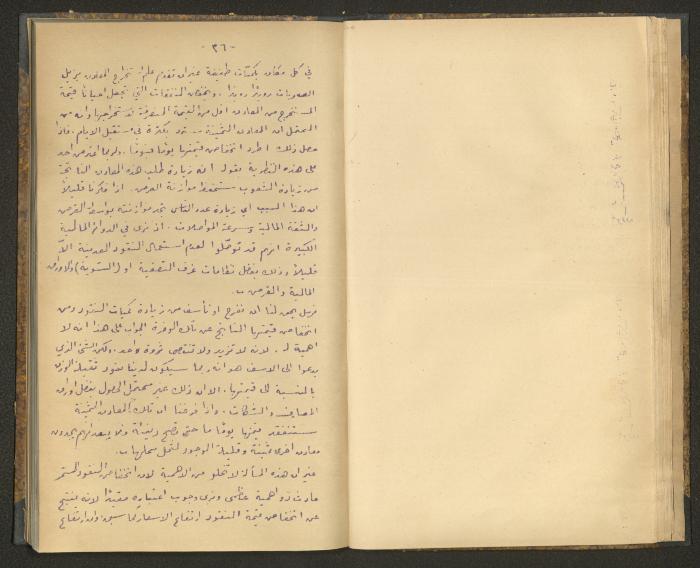 - ٣٦ -
في كل مكان بكميات طفيفة غير ان تقدم علم استخراج المعادن يزيل
الصعوبات رويدًا رويدًا. ويخفض النفقات التي تجعل احيانًا قيمة
المستخرج من المعادن اقل من القيمة المصروفة لاستخراجها وانه من
المحتمل ان المعادن الثمينة ستوجد بكثرة في مستقبل الايام. فاذا
حصل ذلك اطرد انخفاض قيمتها يومًا فيومًا. ولربما اعترض احد
على هذه النظرية بقوله انه زيادة طلب هذه المعادن الناتجة
من زيادة الشعوب ستحفظ موازنة العرض. اذا فكرنا قليلاً
ان هذا السبب اي زيادة عدد الناس تجد موازنته بواسطة القرض
والثقة المالية وسرعة المواصلات. اذ نرى في الدوائر المالية
الكبيرة انهم قد توصلوا لعدم استعمال النقود المعدنية الاّ
قليلاً وذلك بفضل نظامات غرف التصفية او (التسوية) والاوراق
المالية والقرض ب
فهل يحق لنا ان نفرح او نأسف من زيادة كميات النقود ومن
انخفاض قيمتها الناتج عن تلك الوفرة الجواب على هذا انه لا
اهمية له. لانه لا تزيد ولا تنقص ثروة واحد. ولكن الشيء الذي
يدعوا الى الاسف هو انه ربما سيكون لدينا نقود ثقيلة الوزن
بالنسبة الى قيمتها. الا ان ذلك غير محتمل الحصول بفضل اوراق
المصارف والشكات. واذا فرضنا ان تلك المعادن الثمينة
ستفقد قيمتها يومًا ما حتى تصبح دنيئة فلا يبعد انهم يجدون
معادن اخرى ثمينة وقليلة الوجود لتحل محلها ب
غير ان هذه المسألة لا تخلو من الاهمية لان انخفاض النقود المستمر
حادث ذو اهمية عظمى ونرى وجوب اعتباره مفيدًا لانه ينتج
عن انخفاض قيمة النقود ارتفاع الاسعار كما سبق وان ارتفاع